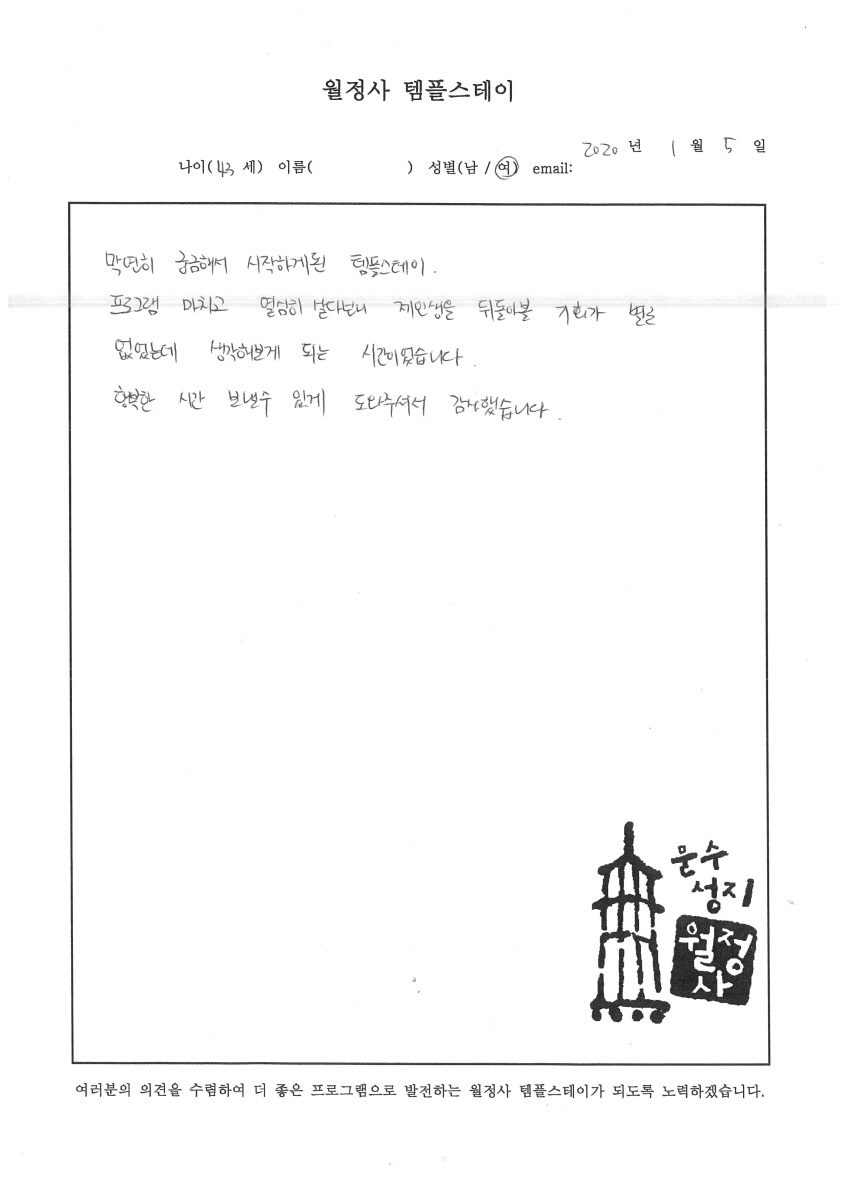 월정사 템플스테이
2020 년 1 월 5 일
나이(43 세) 이름( ) 성별(남 / 여) email:
막연히 궁금해서 시작하게된 템플스테이.
프로그램 마치고 열심히 살다보니 제인생을 뒤돌아볼 기회가 별로
없었는데 생각해보게 되는 시간이었습니다.
행복한 시간 보낼수 있게 도와주셔서 감사했습니다.
문수
성지
월정
사
여러분의 의견을 수렴하여 더 좋은 프로그램으로 발전하는 월정사 템플스테이가 되도록 노력하겠습니다.